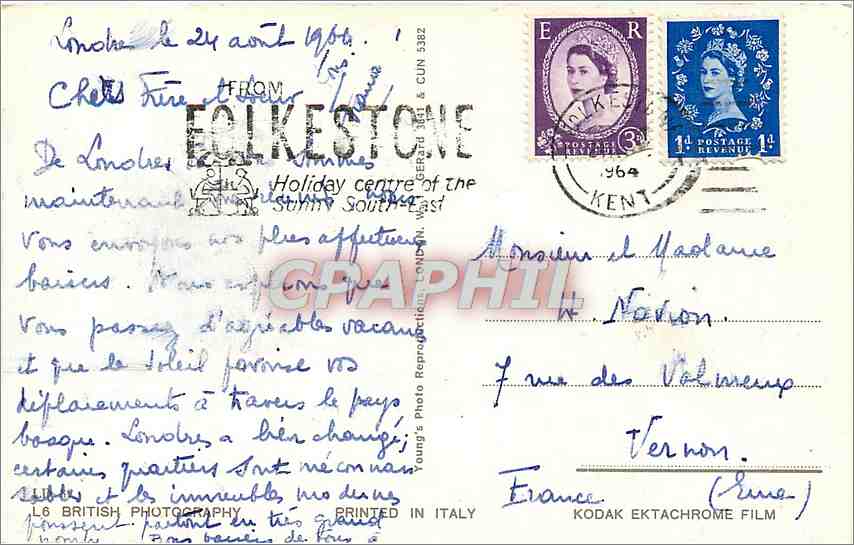 Londres le 24 août 1964.
Chers Frère et Soeur
De Londres où nous sommes
maintenant nous
Vous envoyons nos plus affectueux
baisers. Nous espérons que
Vous passez d'agréables vacances
et que le soleil favorise vos
déplacements à travers le pays
basque. Londres a bien changé;
certains quartiers sont méconnais
sables et les immeubles modernes
poussent partout en très grand
nombre. Bons baisers de tous à
FROM
FOLKESTONE
Holiday centre of the
Sunny South-East
E R
3D
POSTAGE
REVENUE
1D POSTAGE 1D
REVENUE
FOLKESTONE
1964
KENT
Monsieur et Madame
H. Navion.
7 rue des Valmeux
Vernon.
France (Eure)
CPAPHIL
Young's Photo Reproductions LONDON. W. Gerard 3841 & CUN 5382
L6 BRITISH PHOTOGRAPHY PRINTED IN ITALY KODAK EKTACHROME FILM